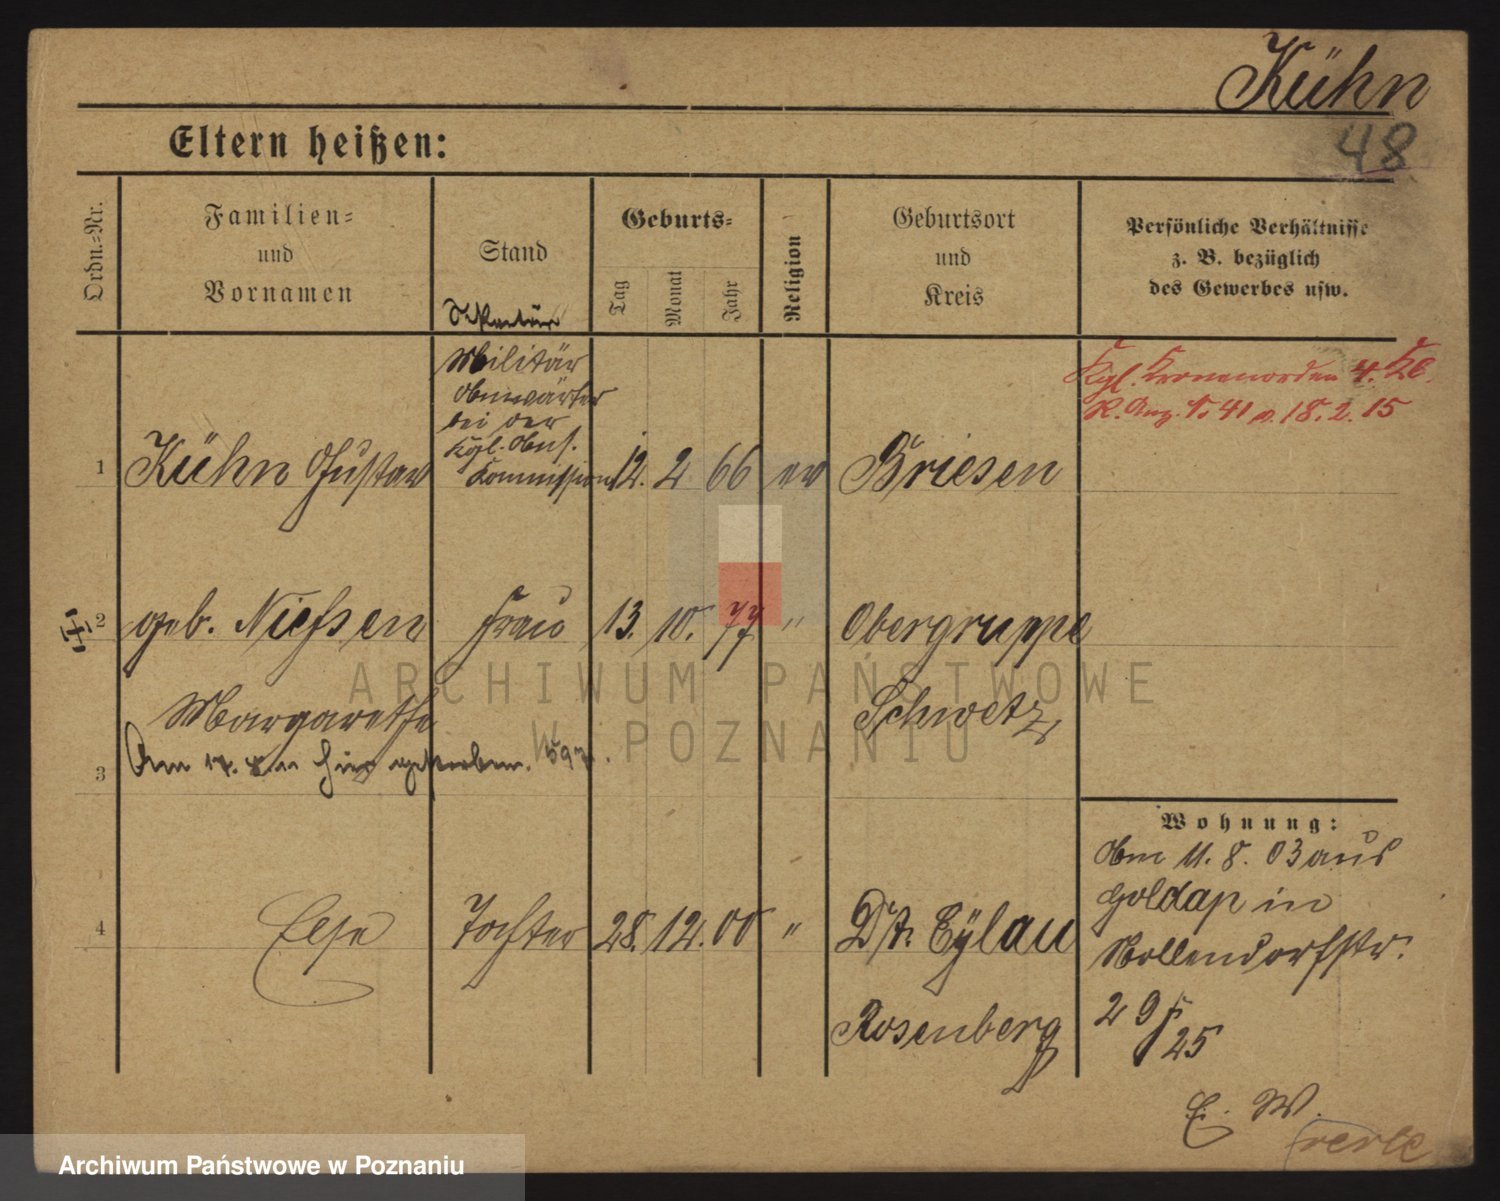 Kühn
48
Eltern heißen:
Ordn.-Nr.
Familien-
und
Vornamen
Stand
Geburts-
Tag
Monat
Jahr
Religion
Geburtsort
und
Kreis
Persönliche Verhältnisse
z. B. bezüglich
des Gewerbes usw.
Militär
bei der
Kgl.
Kommission
1 Kühn Gustav 12. 2. 66 ev Briesen
Kgl. Kronenorden 4. Kl.
18. 2. 15
2 geb. Nießen Frau 13. 10. 77 " Obergruppe
Margarethe Schwetz
3 Am hier gestorben.
4 Else Tochter 28. 12. 00 " Dt. Eylau
Rosenberg
Wohnung:
11. 8. 03 aus
Goldap in
Nollendorfstr.
29
25
E. W.
ARCHIWUM PAŃSTWOWE
W POZNANIU
Archiwum Państwowe w Poznaniu